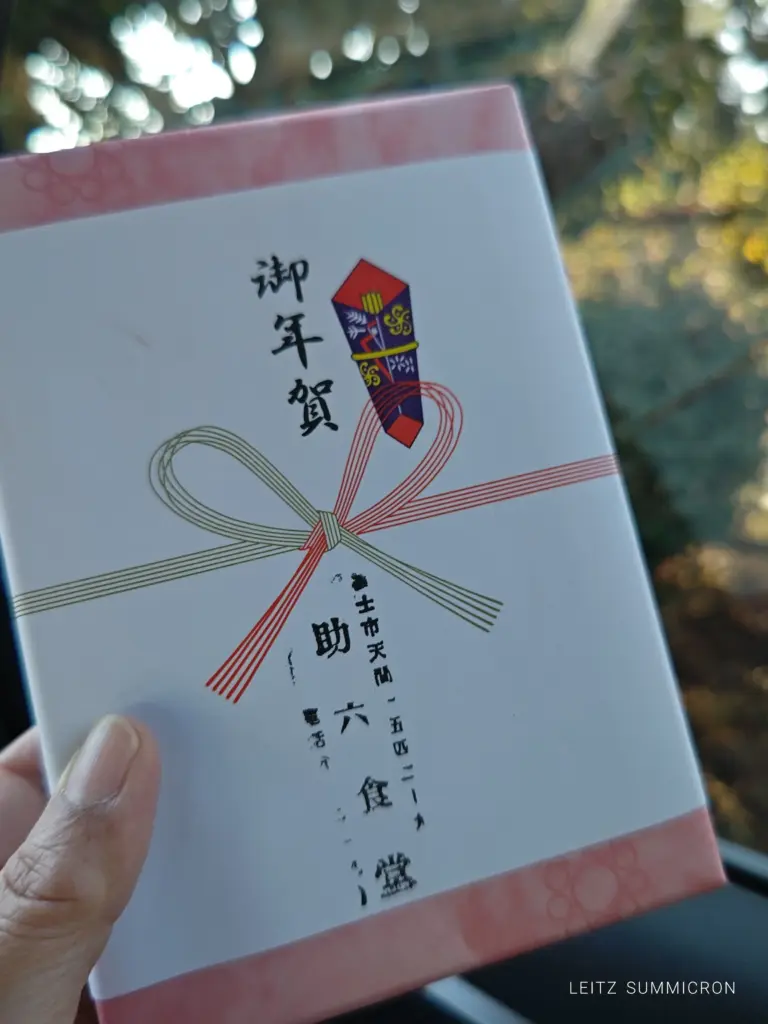 御年賀
士市天間一五四二ー
助六食堂
電話
LEITZ SUMMICRON